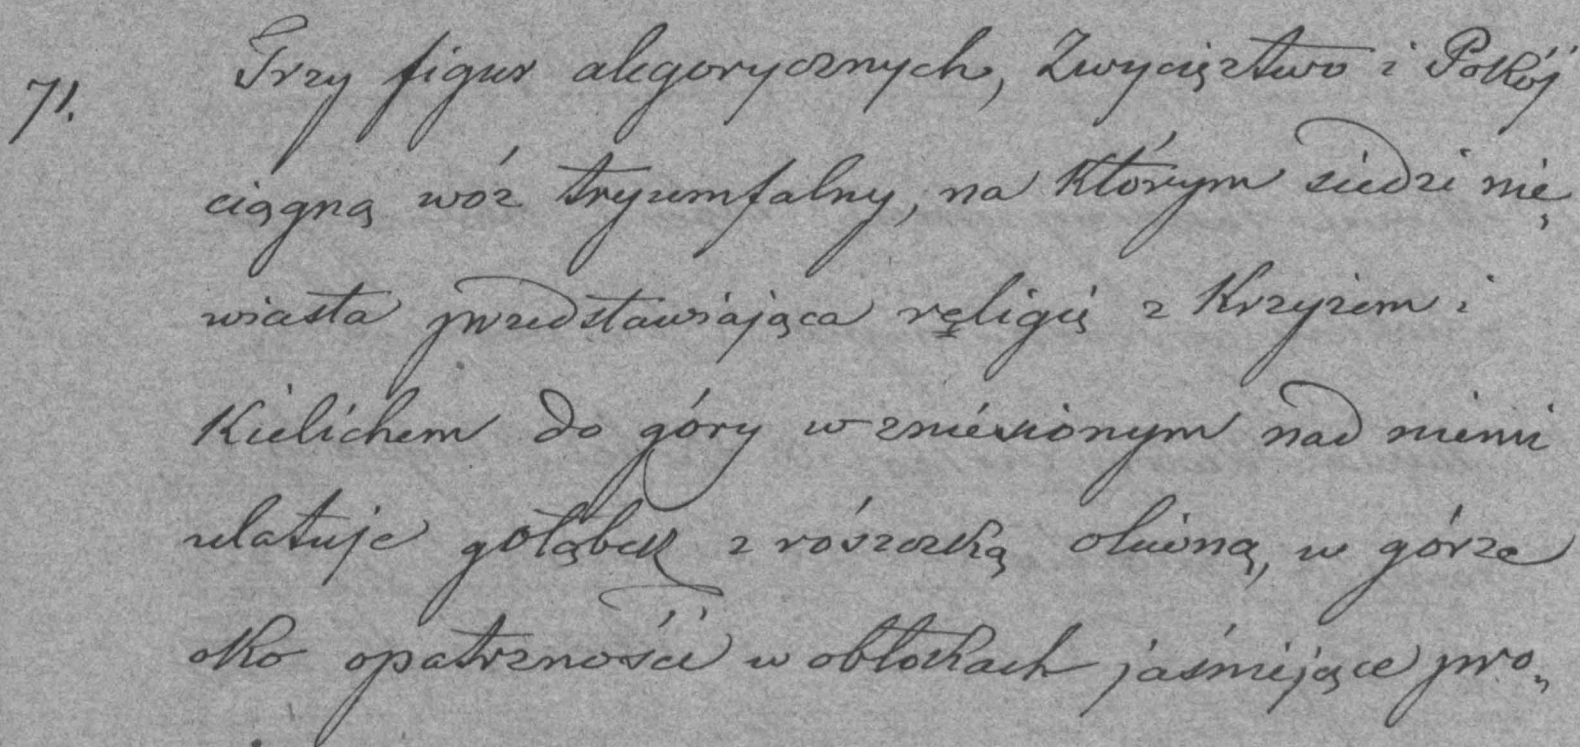 71. Trzy figur alegorycznych, Zwycięztwo i Pokój
ciągną wóz tryumfalny, na którym siedzi nie„
wiasta przedstawiająca religię z Krzyżem i
Kielichem do góry wzniésionym nad niemi
ulatuje gołąbek z rószczką oliwną, w górze
oko opatrzności w obłokach jaśniejące pro„